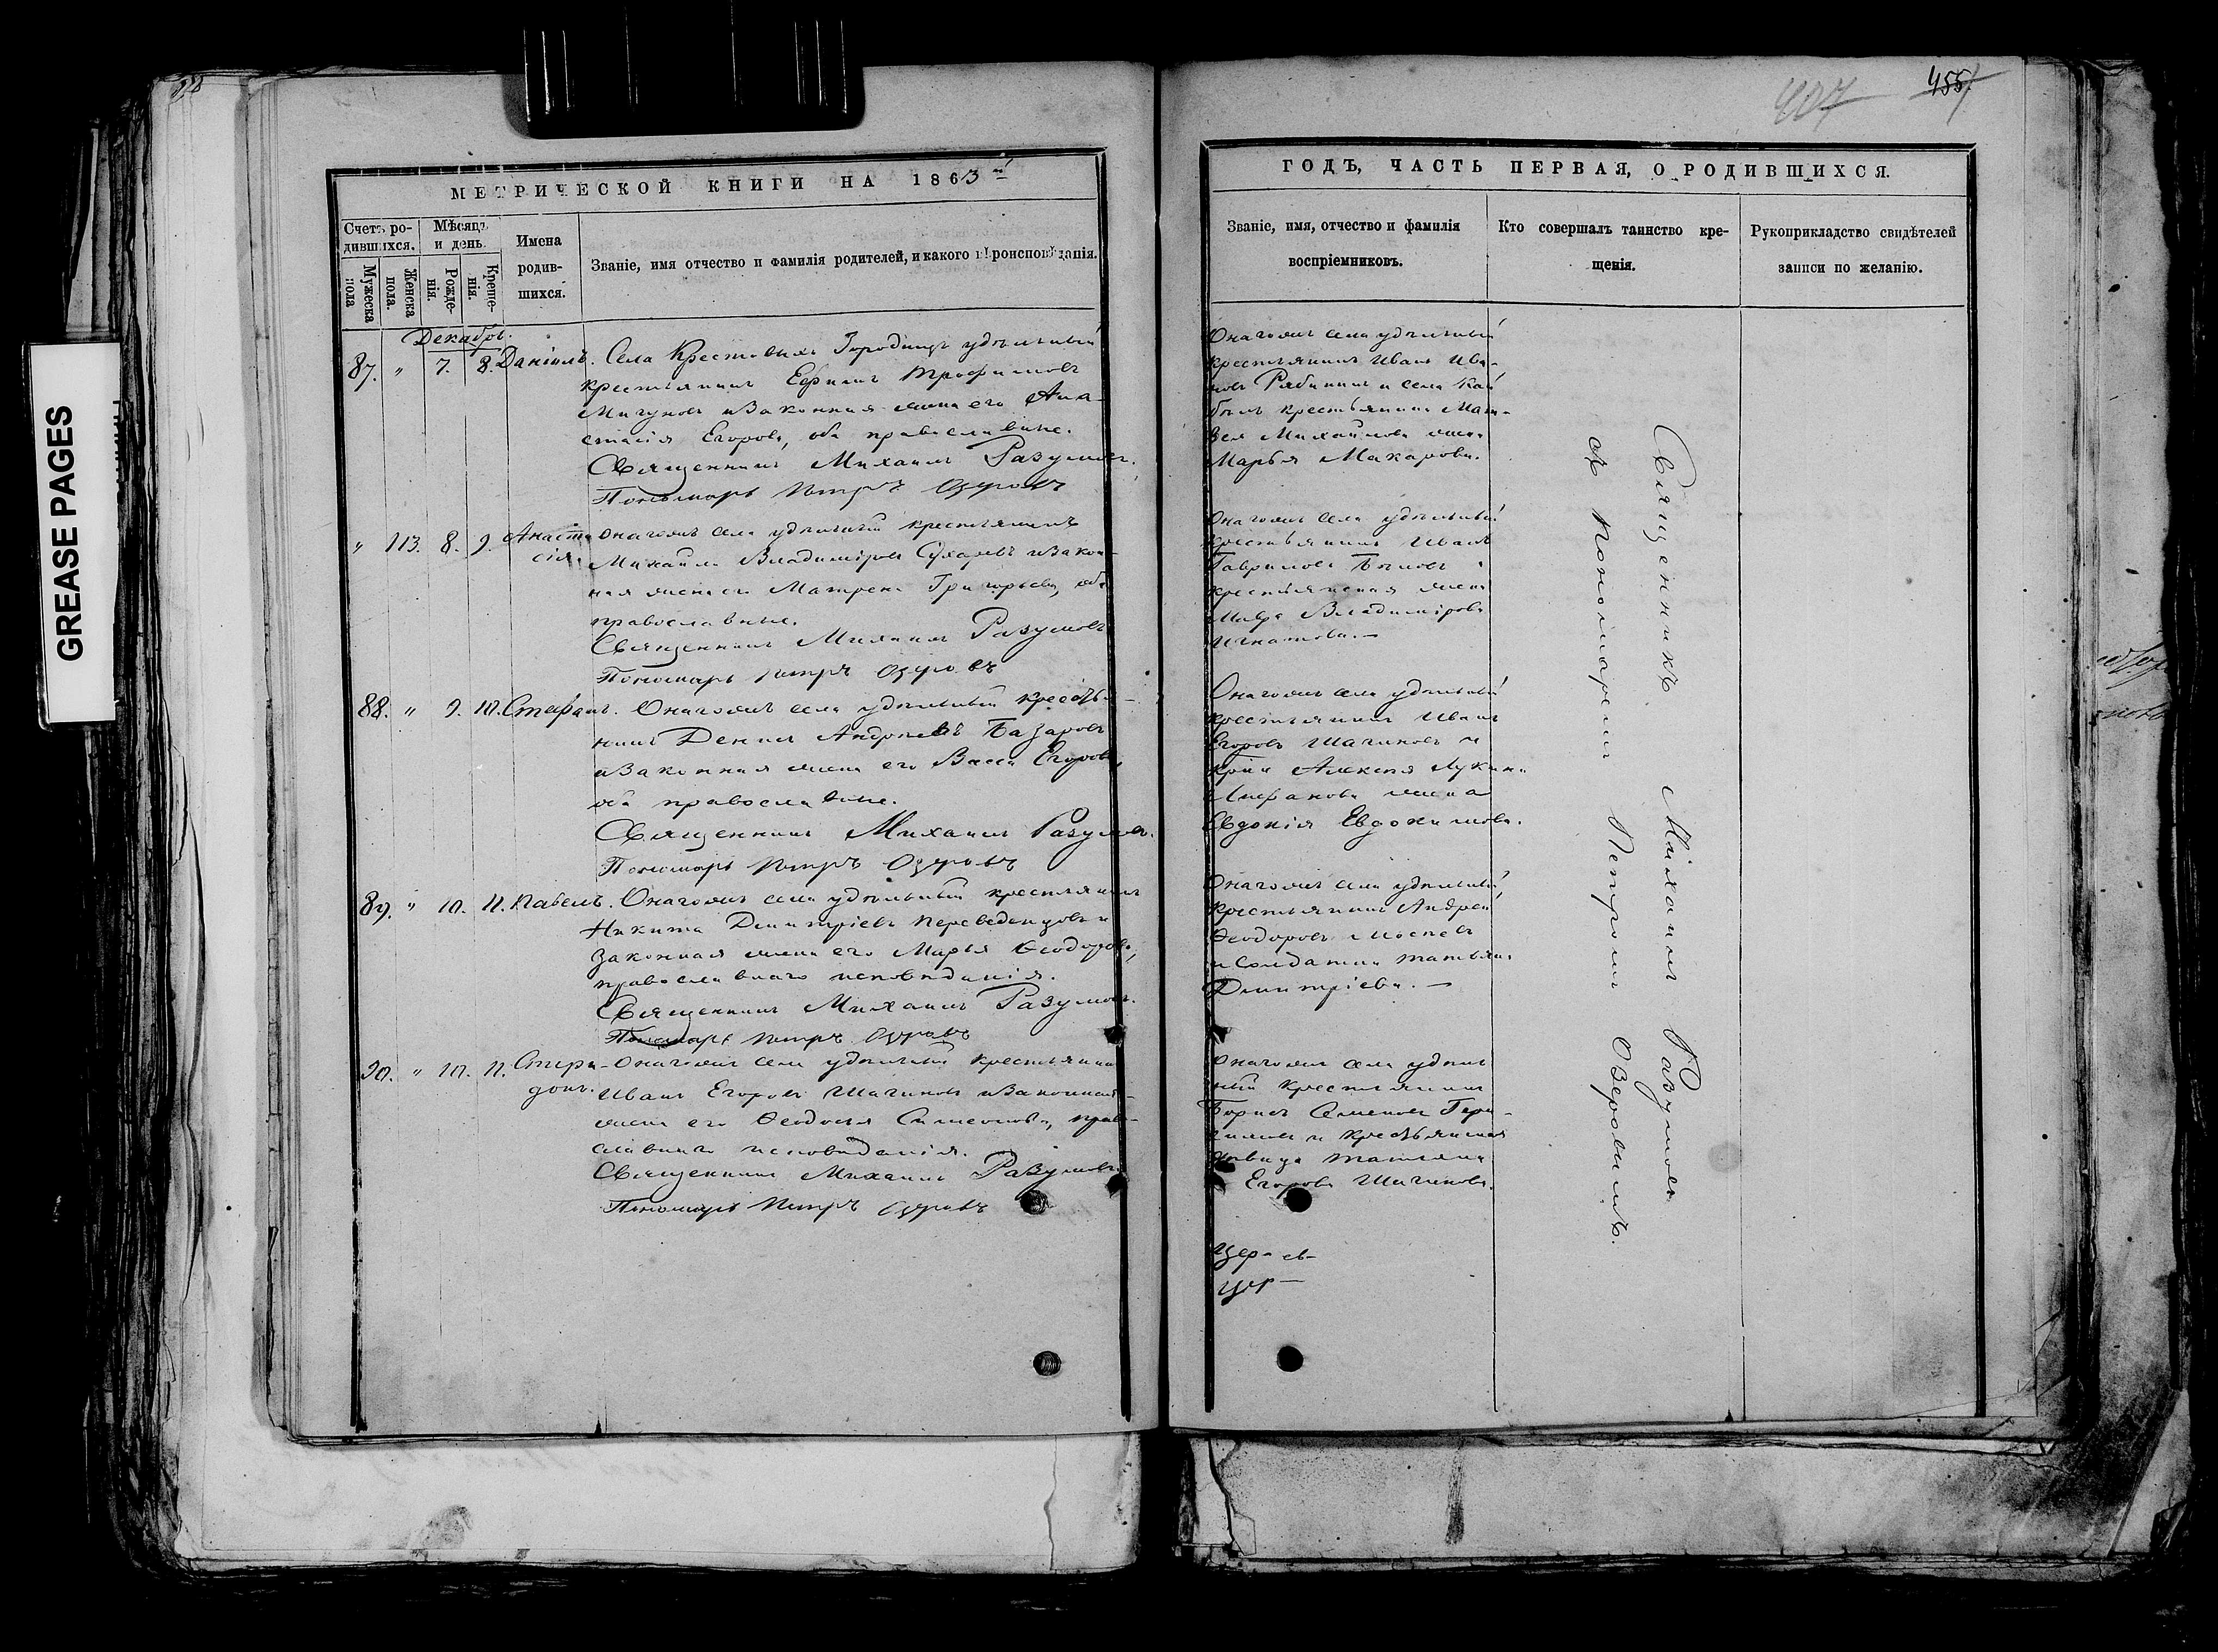 455
407
GREASE PAGES
МЕТРИЧЕСКОЙ КНИГИ НА 1863й
Счетъ родившихся.
Мѣсяцъ и день.
Имена родившихся.
Званіе, имя отчество и фамилія родителей, и какого вѣроисповѣданія.
Мужеска пола
Женска пола.
Рожденія.
Крещенія.
Декабрь
87. " 7. 8. Даніилъ. Села Крестовыхъ Городищъ удѣльный
крестьянинъ Ефимъ Трофимовъ
Мигуновъ и Законная жена его Ана-
стасія Егорова, оба православные.
Священникъ Михаилъ Разумовъ.
Пономарь Петръ Озеровъ
" 113. 8. 9. Анаста- Онагожъ села удѣльный крестьянинъ
сія. Михаилъ Владиміровъ Сухаревъ и Закон-
ная жена его Матрена Григорьева, оба
православные.
Священникъ Михаилъ Разумовъ
Пономарь Петръ Озеровъ
88. " 9. 10. Стефанъ. Онагожъ села удѣльный крестья-
нинъ Денисъ Андреевъ Базаровъ
и Законная жена его Васса Егорова,
оба православные.
Священникъ Михаилъ Разумовъ.
Пономарь Петръ Озеровъ
89. " 10. 11. Павелъ. Онагожъ села удѣльный крестьянинъ
Никита Дмитріевъ Переведенцовъ и
Законная жена его Марья Ѳеодорова,
православнаго исповѣданія.
Священникъ Михаилъ Разумовъ.
Пономарь Петръ Озеровъ
90. " 10. 11. Спири- Онагожъ села удѣльный крестьянинъ
донъ. Иванъ Егоровъ Шагиновъ и Законная
жена его Ѳеодосья Симеонова, право-
славнаго исповѣданія.
Священникъ Михаилъ Разумовъ
Пономарь Петръ Озеровъ
ГОДЪ, ЧАСТЬ ПЕРВАЯ, О РОДИВШИХСЯ.
Званіе, имя, отчество и фамилія воспріемниковъ.
Кто совершалъ таинство крещенія.
Рукоприкладство свидѣтелей записи по желанію.
Онагожъ села удѣльный
крестьянинъ Иванъ Ива-
новъ Рябининъ и села Кай
крестьянина Мат-
вея Михайлова жена
Марья Макарова.
Онагожъ села удѣльный
крестьянинъ Иванъ
Гавриловъ
крестьянская жена
Мавра Владимірова
Игнатова.—
Онагожъ села удѣльный
крестьянинъ Иванъ
Егоровъ Шагиновъ и
Алексѣя Лукина
жена
Евдокія Евдокимова.
Онагожъ села удѣльный
крестьянинъ Андрей
Ѳеодоровъ
и Солдатка Татьяна
Дмитріева.—
Онагожъ села удѣль
ный крестьянинъ
Борисъ Семеновъ Гера-
симовъ и крестьянская
дѣвица Татьяна
Егорова Шагинова.
Священникъ Михаилъ Разумовъ
съ Пономаремъ Петромъ Озеровымъ.